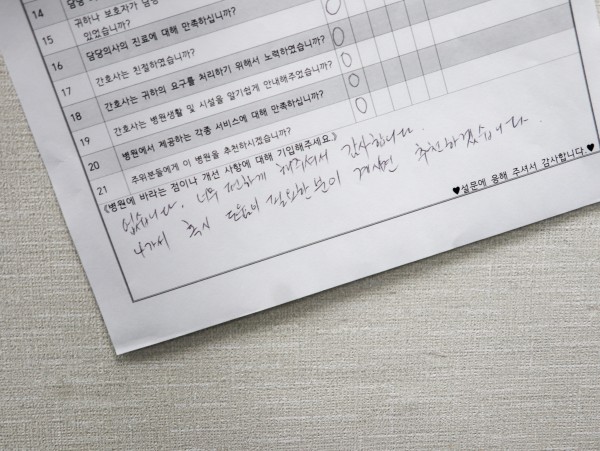 14 담당
귀하나 보호자가 담당
15 있었습니까?
16 담당의사의 진료에 대해 만족하십니까?
17 간호사는 친절하였습니까?
18 간호사는 귀하의 요구를 처리하기 위해서 노력하였습니까?
19 간호사는 병원생활 및 시설을 알기쉽게 안내해주었습니까?
20 병원에서 제공하는 각종 서비스에 대해 만족하십니까?
21 주위분들에게 이 병원을 추천하시겠습니까?
《병원에 바라는 점이나 개선 사항에 대해 기입해주세요.》
없습니다. 너무 친절하게 해주셔서 감사합니다.
나가서 혹시 도움이 필요한 분이 계시면 추천하겠습니다.
♥설문에 응해 주셔서 감사합니다.♥